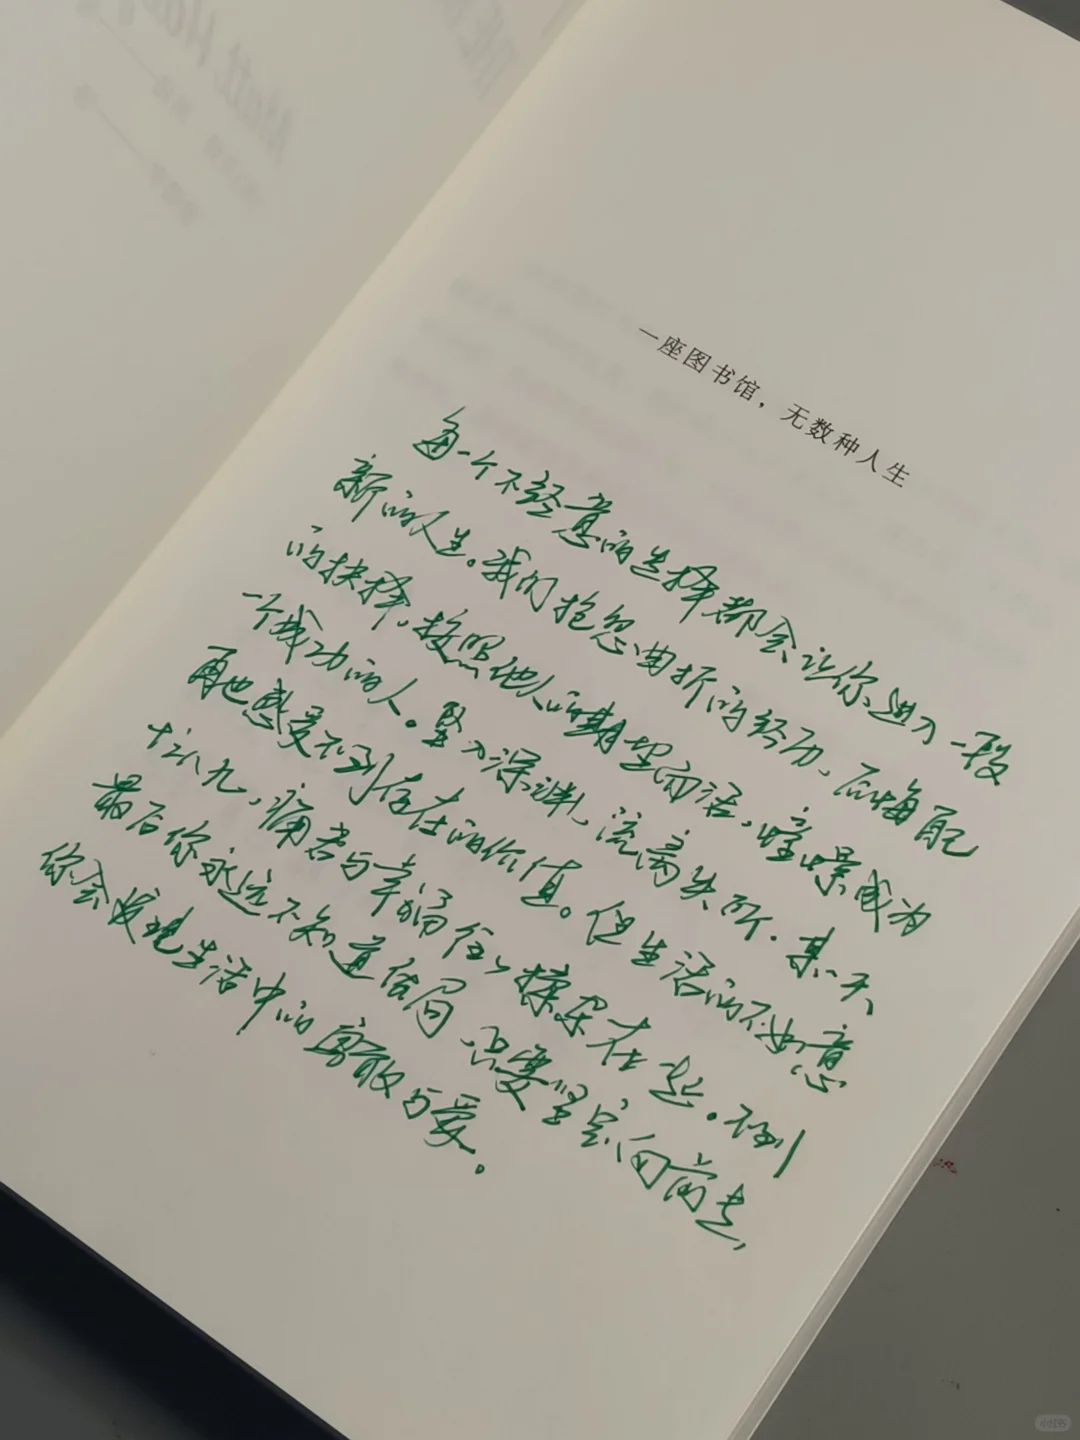 Matt Ha
一座图书馆，无数种人生
每一个不经意的选择都会让你进入一段
新的人生。我们抱怨曲折的经历，后悔自己
的抉择，按照他人的期望而活，憧憬成为
一个成功的人。坠入深渊，流离失所。某一天
再也感受不到存在的价值。但生活的不如意
十之八九，痛苦与幸福往々揉杂在一起。不到
最后你永远不知道结局，只要坚定向前走，
你会发现生活中的勇敢与爱。
小红书